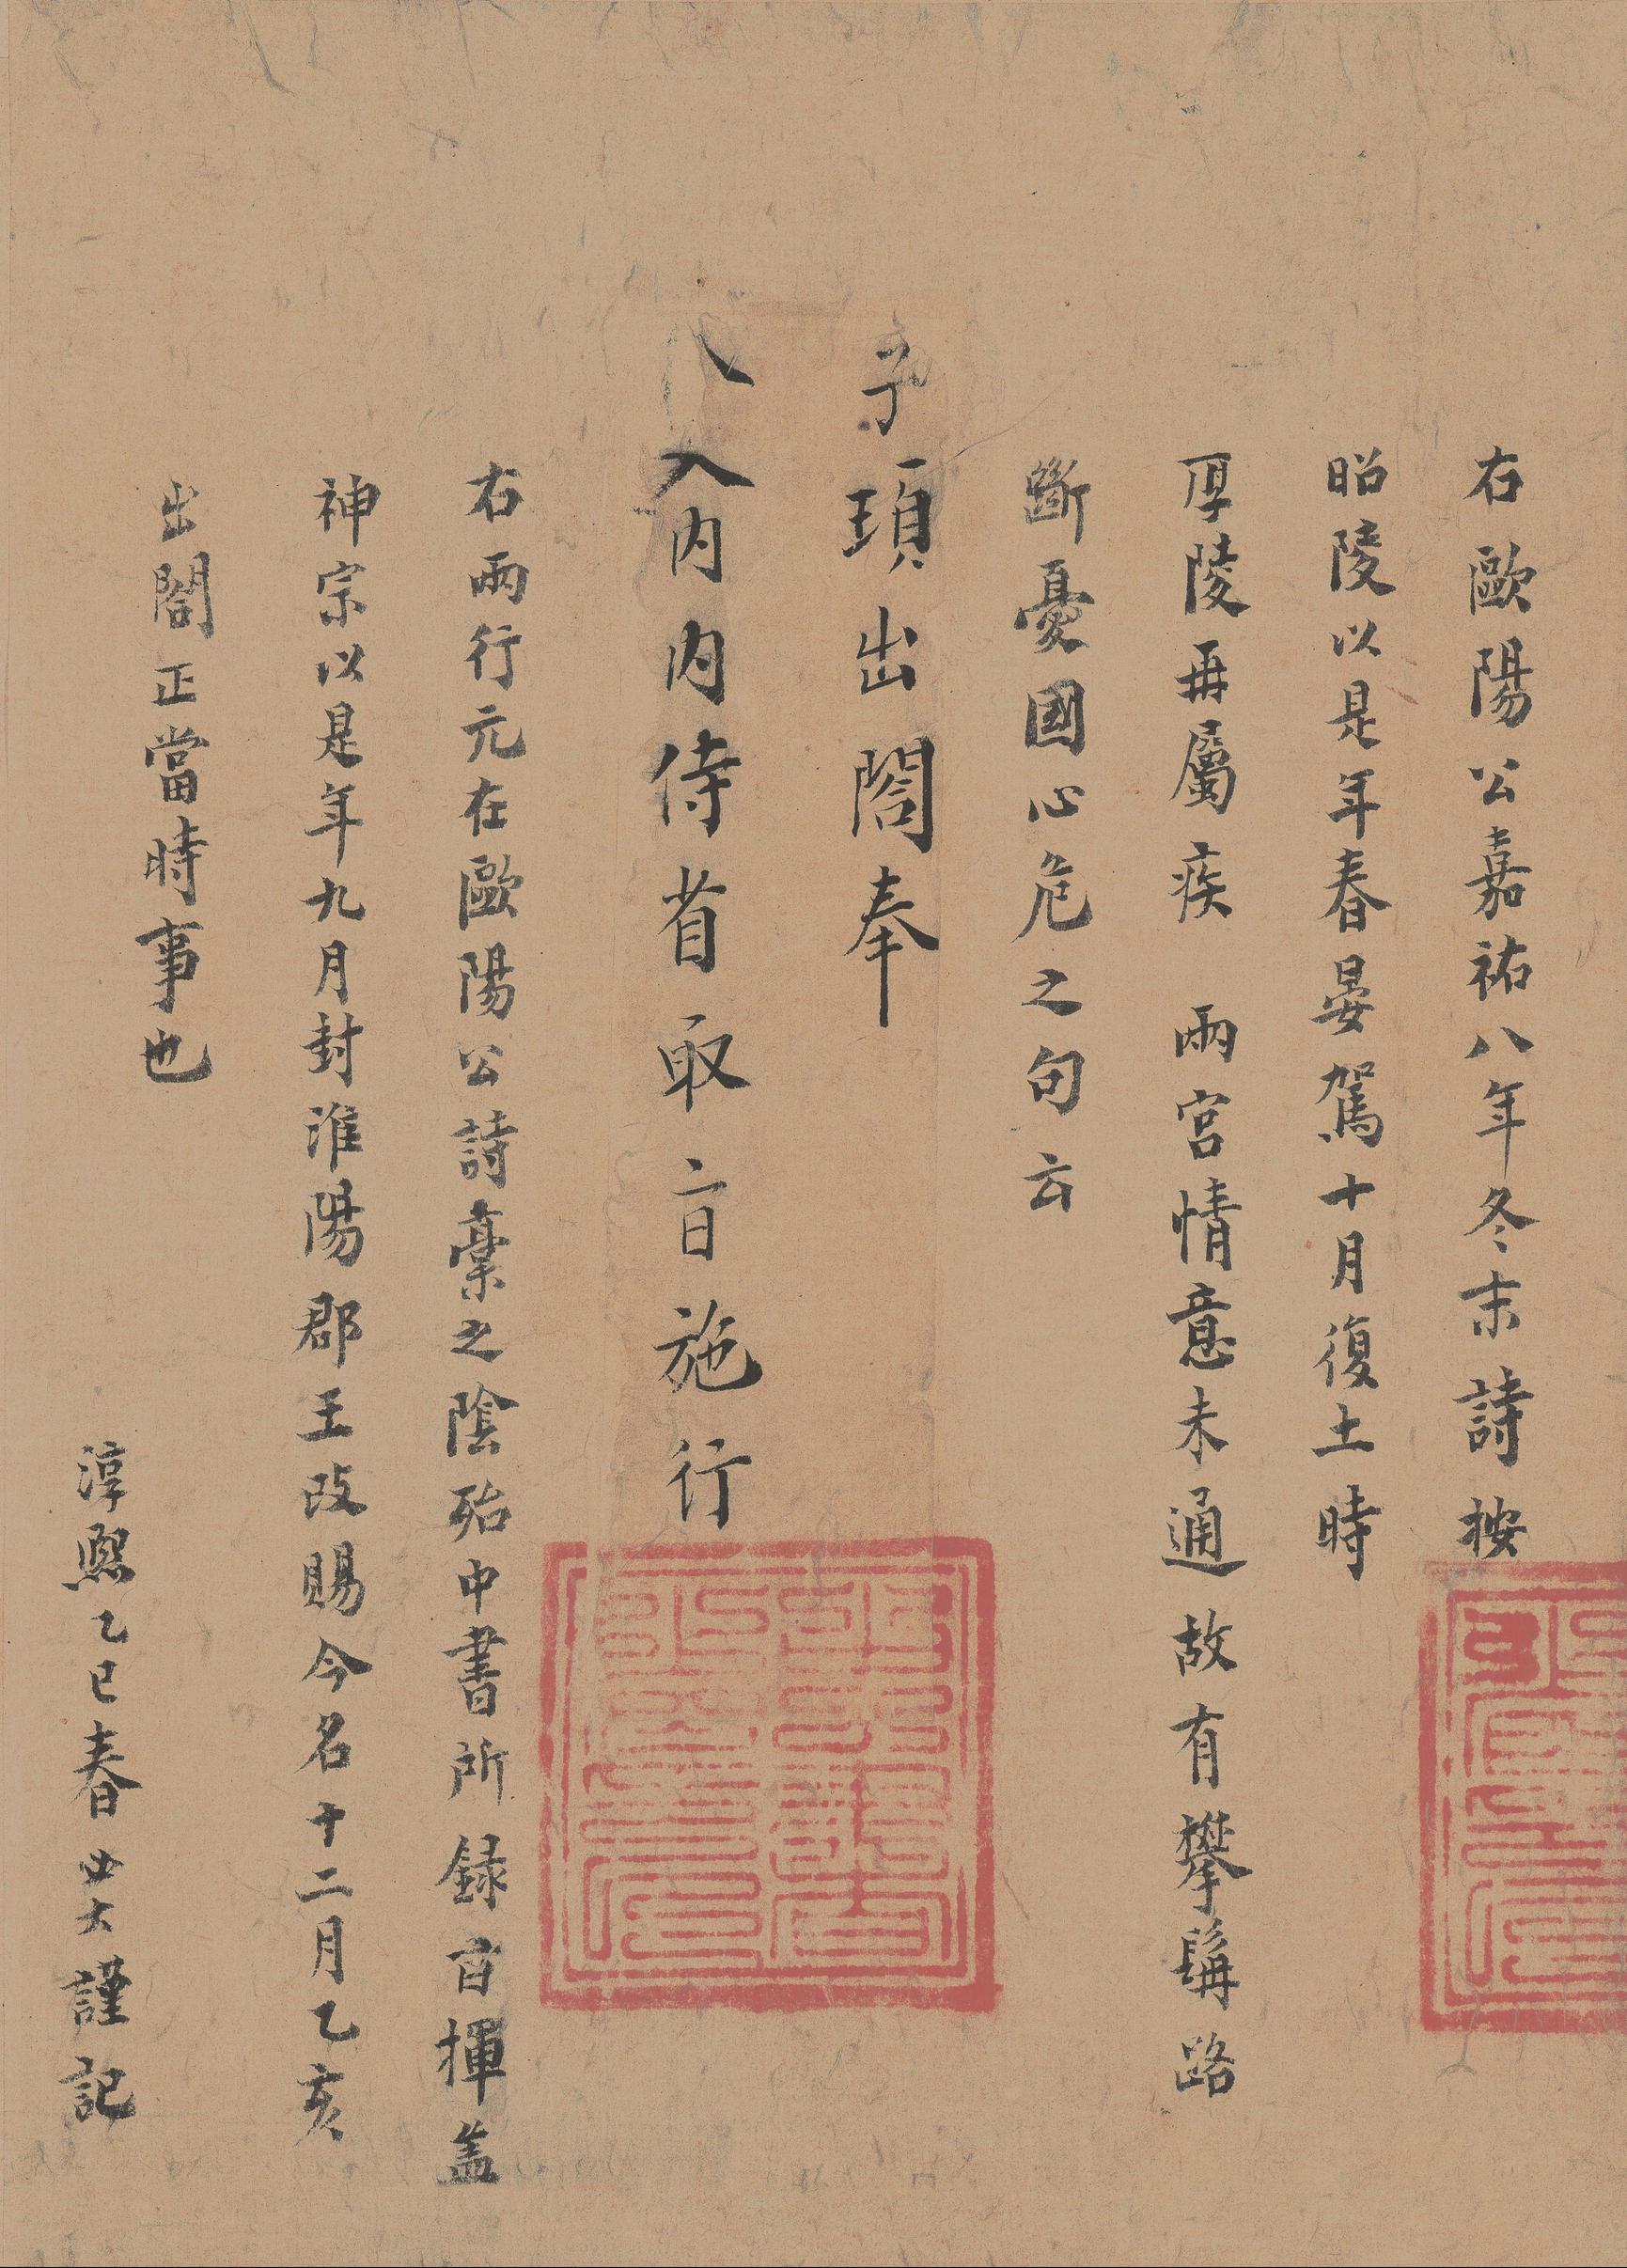 右歐陽公嘉祐八年冬末詩按
昭陵以是年春晏駕十月復土時
厚陵再屬疾 兩宮情意未通故有攀髯路
斷憂國心危之句云
子頊出閤奉
入內內侍省取旨施行
右兩行元在歐陽公詩稾之陰殆中書所錄旨揮盖
神宗以是年九月封淮陽郡王改賜今名十二月乙亥
出閤正當時事也
淳熙乙巳春 謹記